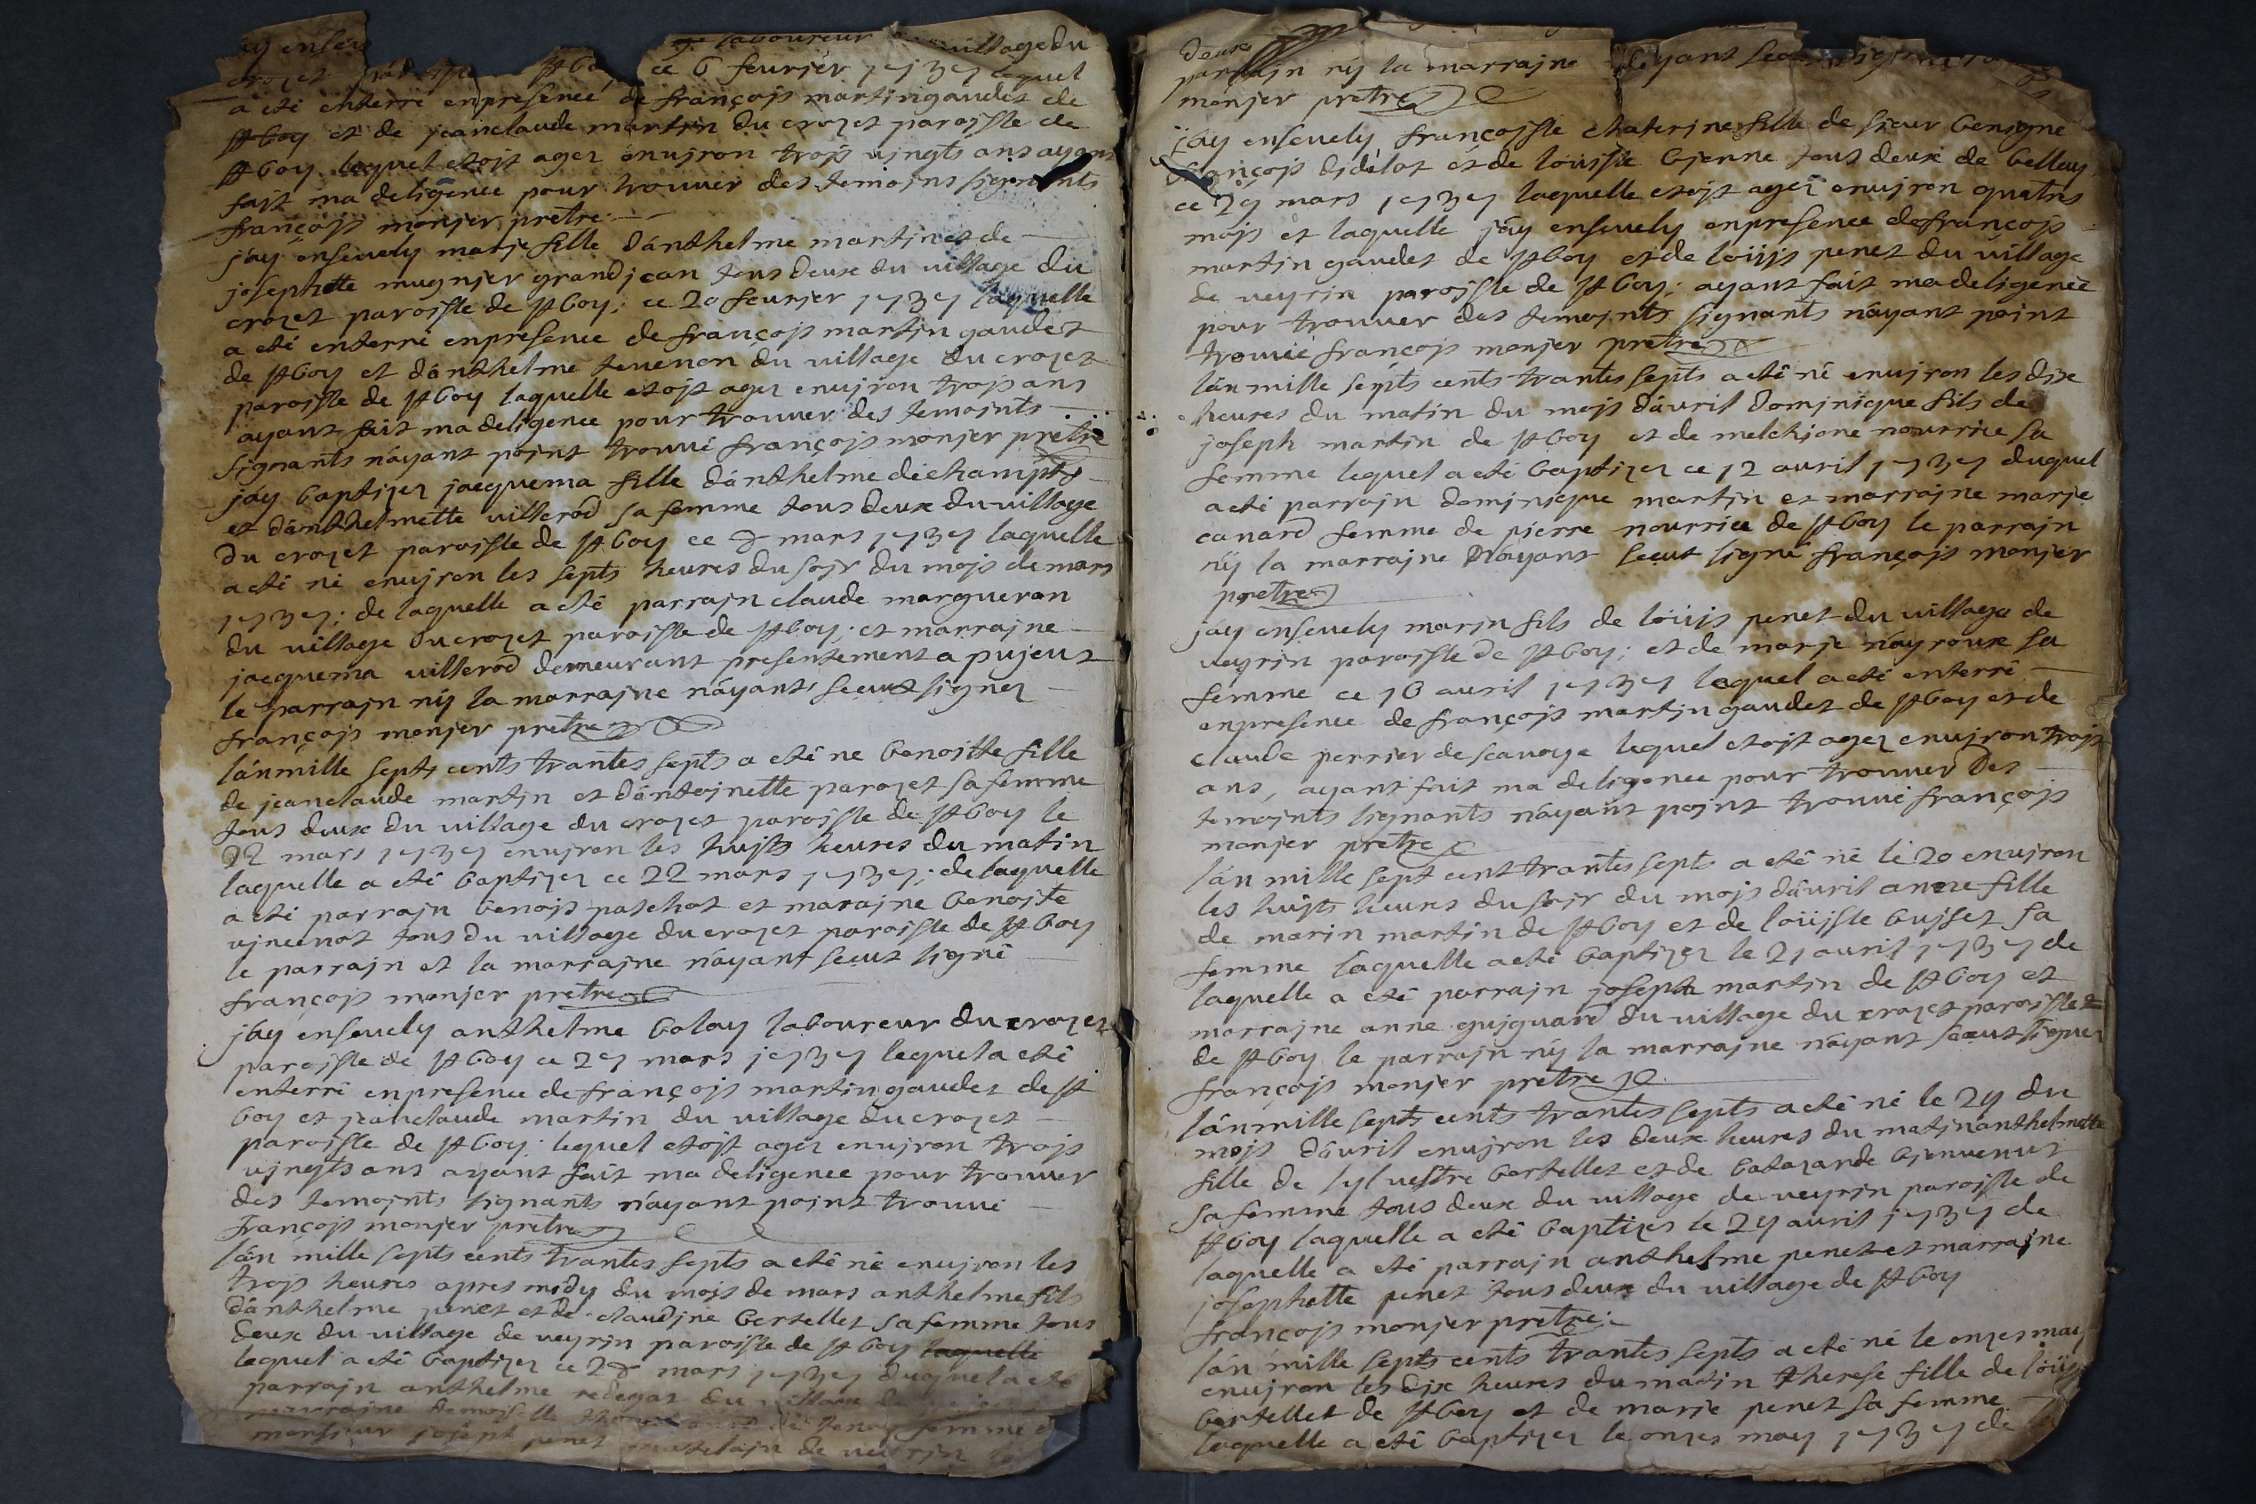 jay ensev
laboureur village du
crozet ce 6 feurjer 1737 lequel
a eté enterré enpresence de françojs martin gaudet de
st boy et de jeanclaude martin du crozet paroisse de
st boy lequel etojt agez enujron trojs ujngts ans ayant
fajt ma deligence pour trouuer des temojns signants
françojs monjer pretre
jáy enseuely marje fille dánthelme martin et de
josephtte mugnjer grandjean tous deux du uillage du
crozet paroisse de st boy; ce 20 feurjer 1737 laquelle
a eté enterré enpresence de françojs martin gaudet
de st boy et dánthelme teuenon du uillage du crozet
paroisse de st boy laquelle etojt agez enujron trojs ans
ayant fait ma deligence pour trouuer des temojnts
signants náyant pojnt trouué françojs monjer pretre
jáy baptizez jacquema fille dánthelme dechampts
et dánthelmette uillerod sa femme tous deux du uillage
du crozet paroisse de st boy ce 8 mars 1737 laquelle
a eté né enujron les septs heures du sojr du mojs de mars
1737; de laquelle a eté parrajn claude margueron
du uillage du crozet paroisse de st boy; et marrajne
jacquema uillerod demeurant presentement a pujeut
le parrajn nÿ la marrajne náyants sceut signez
françojs monjer pretre
lánmille septs cents trantes septs a eté ne benojtte fille
de jeanclaude martin et dántojnette parozet sa femme
tous deux du uillage du crozet paroisse de st boy le
22 mars 1737 enujron les hujts heures du matin
laquelle a eté baptizez ce 22 mars 1737; de laquelle
a eté parrajn benojs patchot et marajne benojte
ujncenot tous du uillage du crozet paroisse de st boy
le parrajn et la marrajne náyant sceut signé
françojs monjer pretre
jáy enseuely anthelme bolay laboureur du crozet
paroisse de st boy ce 27 mars 1737 lequel a eté
enterré enpresence de françojs martin gaudet de st
boy et jeanclaude martin du uillage du crozet
paroisse de st boy; lequel etojt agez enujron trojs
ujngts ans ayant fait ma deligence pour trouuer
des temojnts signants náyant pojnt trouué
françojs monjer pretre
lán mille septs cents trantes septs a eté né enujron les
trojs heures apres mjdy du mojs de mars anthelme fils
dánthelme penet et de claudjne bertellet sa femme tous
deux du uillage de ueyrjn paroisse de st boy laquelle
lequel a eté baptizez ce 28 mars 1737 duquel a eté
parrajn anthelme redegat du uillage de
marrajne demojselle femme d
monsjeur joseph penet chatelajn de ueyrjn
deux
parrajn nÿ la marrajne náyant
monjer pretre
jáy enseuely françojsse chaterjne fille de sjeur benigne
françojs djdelot et de louisse bjenne tous deux de belley
ce 29 mars 1737 laquelle etojt agez enujron quatres
mojs et laquelle jáy enseuely enpresence de françojs
martin gaudet de st boy et de loüijs penet du uillage
de ueyrin paroisse de st boy; ayant fait ma deligence
pour trouuer des temojnts signants náyant pojnt
trouué françojs monjer pretre
lán mille septs cents trantes septs a eté né enujron les djx
heures du matin du mojs dáuril domjnique fils de
joseph martin de st boy et de melchione nourrice sa
femme lequel a eté baptizez ce 12 auril 1737 duquel
a eté parrajn domjnique martin et marrajne marje
canard femme de pierre nourrice de st boy le parrajn
nÿ la marrajne náyant sceut signé françojs monjer
pretre
jáy enseuely marjn fils de loüijs penet du uillage de
ueyrin paroisse de st boy; et de marje nayroux sa
femme ce 16 auril 1737 lequel a eté enterré
enpresence de françojs martin gaudet de st boy et de
claude perrier de scauoye lequel etojt agez enujron trojs
ans, ayant fait ma deligence pour trouuer des
temojnts signants náyant pojnt trouué françojs
monjer pretre
lán mille sept cent trantes septs a eté né le 20 enujron
les hujts heures du sojr du mojs dáuril anne fille
de marin martin de st boy et de loüisse bujset sa
femme laquelle a eté baptizez le 21 auril 1737 de
laquelle a eté parrajn joseph martin de st boy et
marrajne anne gujguard du uillage du crozet paroisse
de st boy le parrajn nÿ la marrajne náyant sceut signez
françojs monjer pretre
lánmille septs cents trantes septs a eté né le 29 du
mojs dáuril enujron les deux heures du matjn anthelmette
fille de syluestre bertellet et de balazande bjenuenut
sa femme tous deux du uillage de ueyrjn paroisse de
st boy laquelle a eté baptizes le 29 auril 1737 de
laquelle a eté parrajn anthelme penet et marrajne
josephtte penet tous deux du uillage de st boy
françojs monjer pretre
lán mille septs cents trantes septs a eté né le onzes may
enujron les djx heures du matin therese fille de loüijs
bertellet de st boy et de marje penet sa femme
laquelle a eté baptizez le onzes may 1737 de